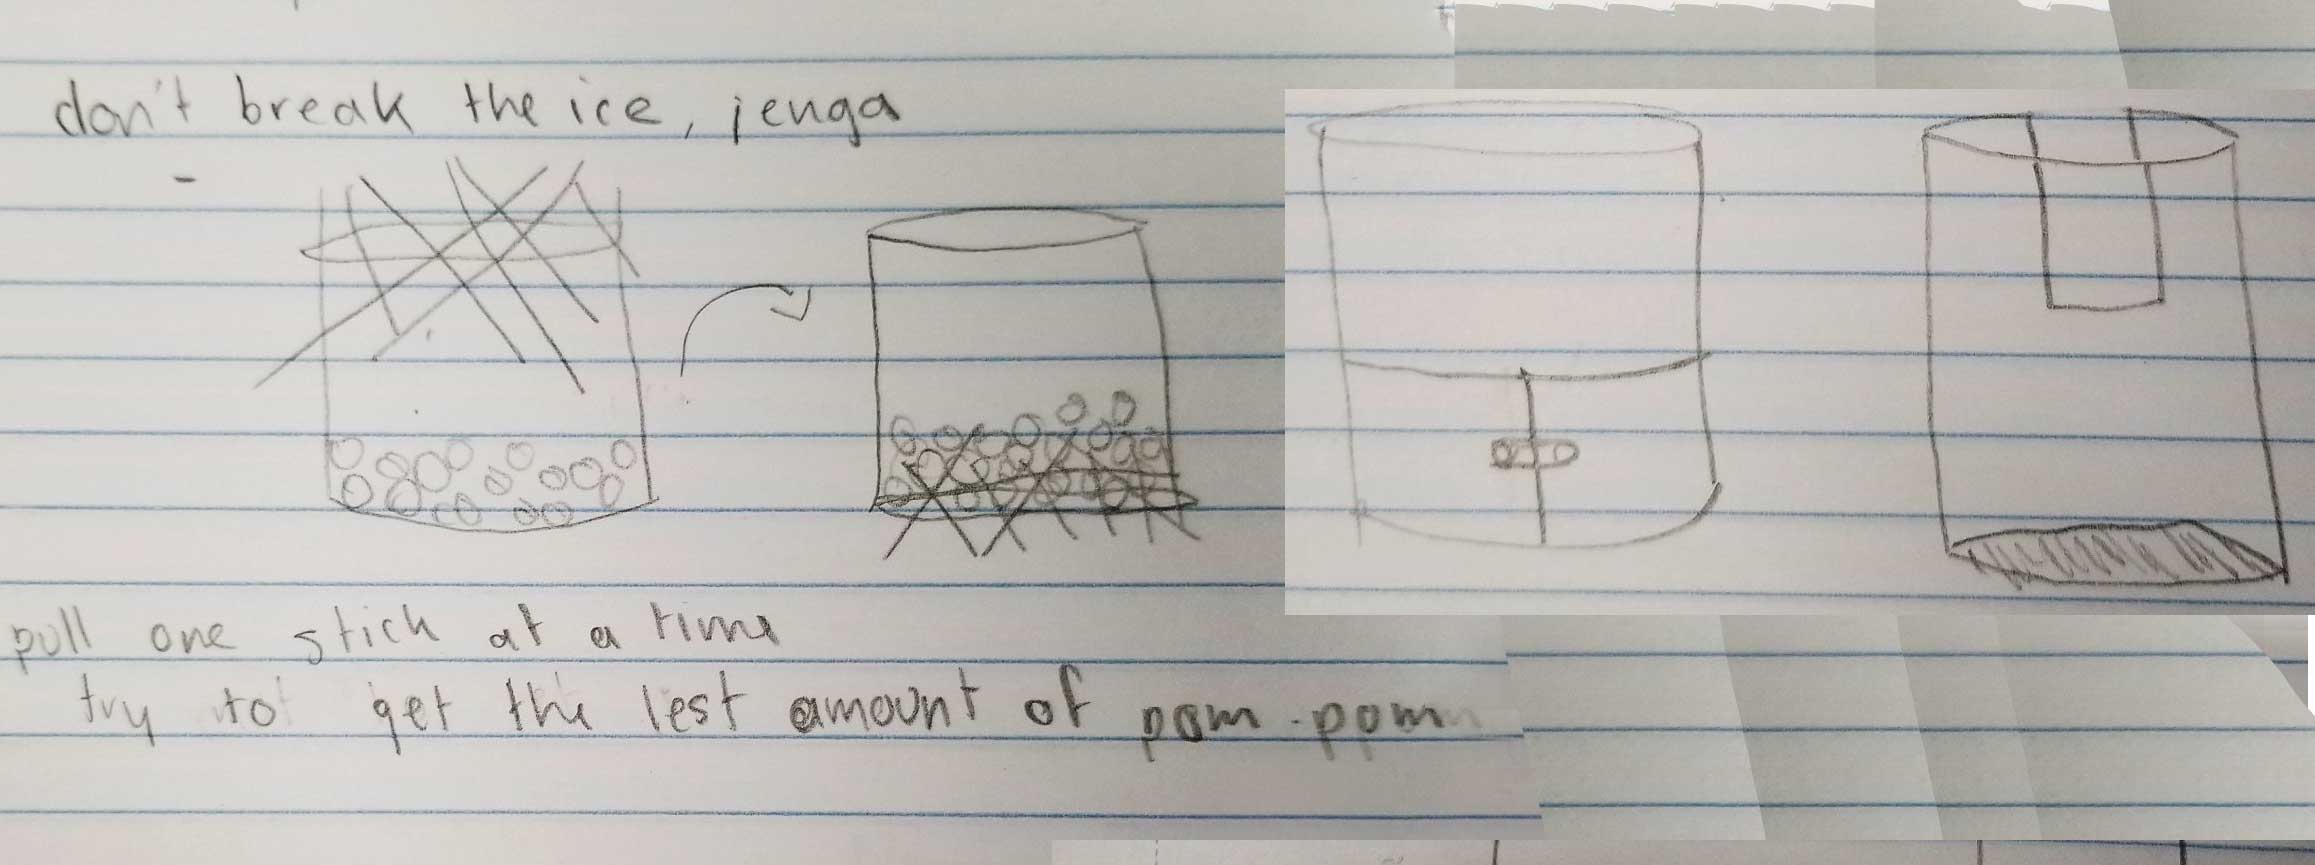 don't break the ice, jenga
-
pull one stick at a time
try to get the lest amount of pom-pom